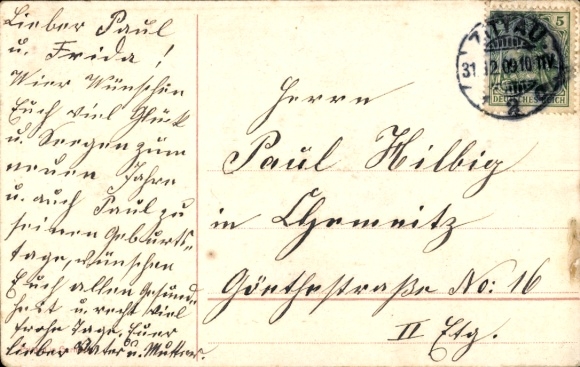 Lieber Paul
u. Frida!
Wier Wünschen
Euch viel Glück
u. Seegen zum
neuen Jahre
u. auch Paul zu
seinen Geburts-
tage, wünschen
Euch allen Gesund-
heit u. recht viel
frohe Tage. Euer
lieber Vater u. Mutter.
5
DEUTSCHES REICH
ZITTAU
31.12.09.10-11V.
a
Herrn
Paul Hilbig
in Chemnitz
Göethestraße No: 16
II Etg.